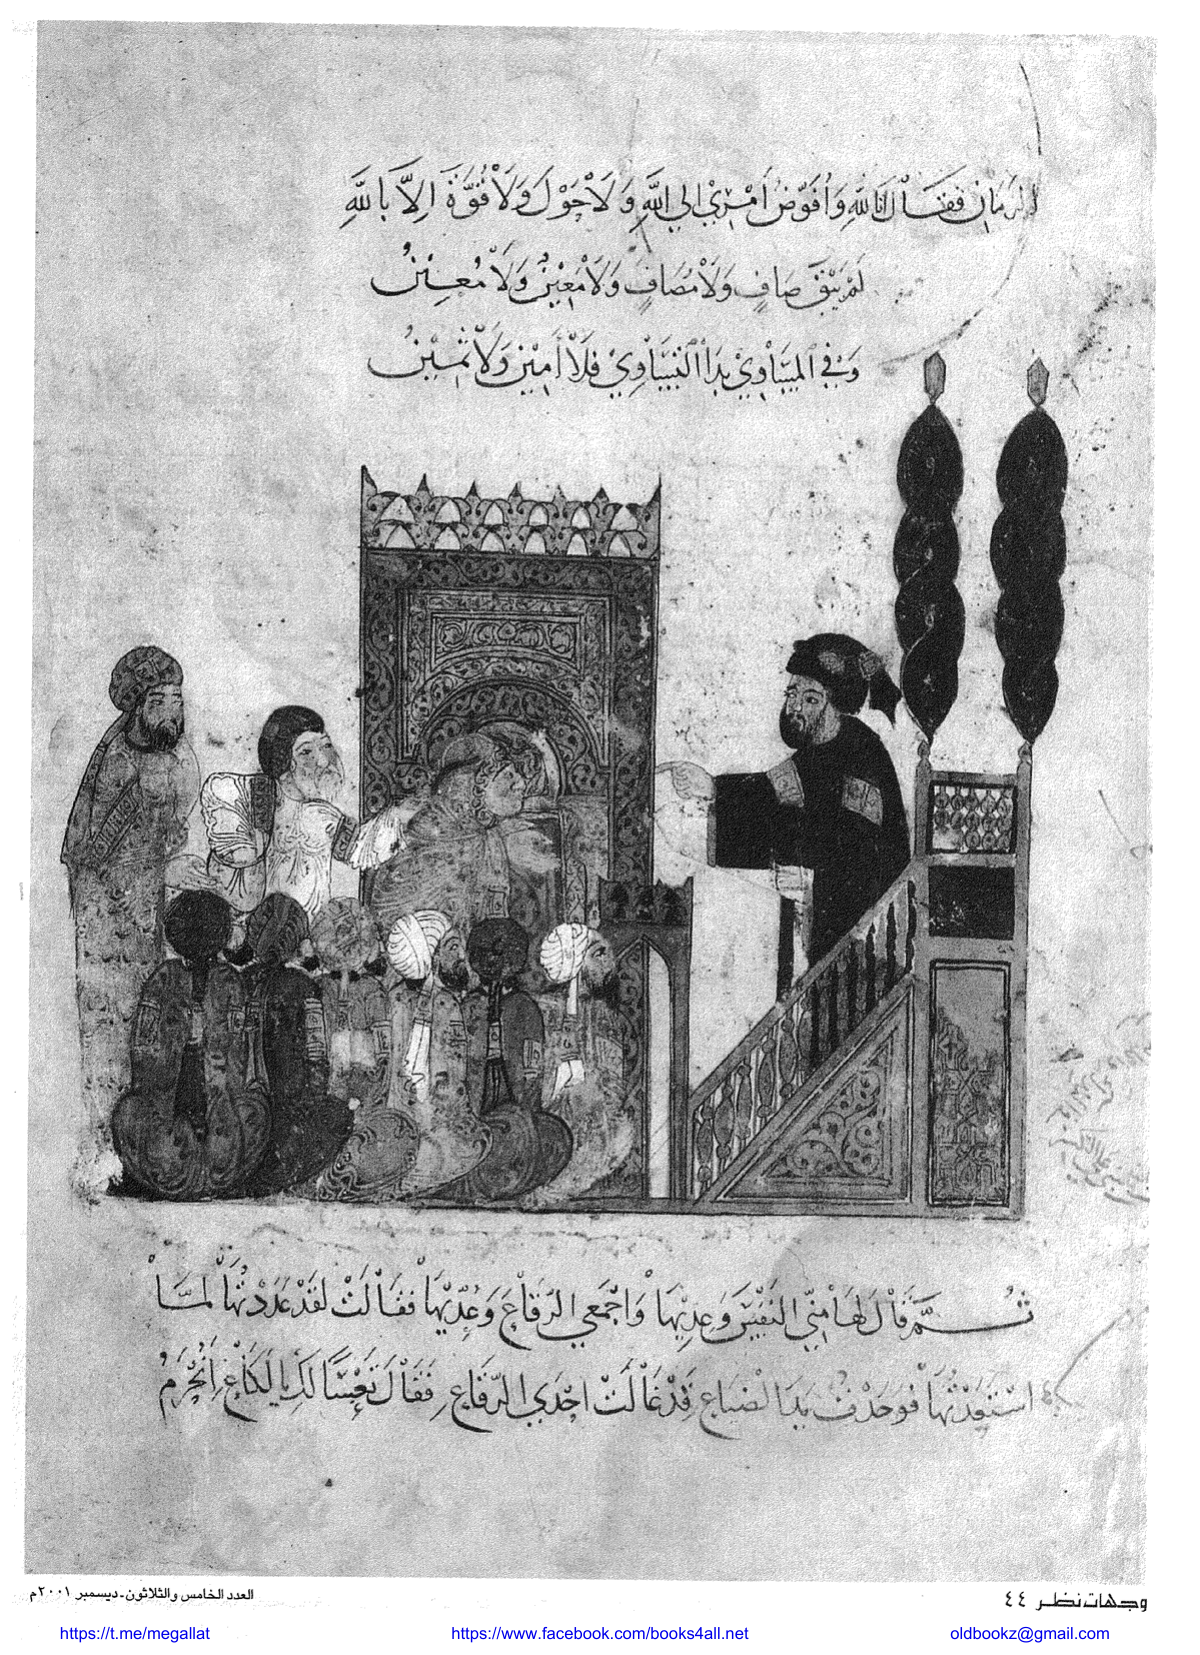 الزمان فقال انا لله وأفوّض أمري الى الله ولا حول ولا قوّة الاّ بالله
لم يبق صافٍ ولا مصافٍ ولا معين ولا معين
وفي المساوي بدا التساوي فلا أمين ولا ثمين
ثم قال لها منّي النفس وعديها واجمعي الرقاع وعدّيها فقالت لقد عددتها لما
استعدتها فوجدت يد الضياع قد غالت احدى الرقاع فقال تعسًا لك يا لكاع انحرم
وجهات نظر ٤٤
العدد الخامس والثلاثون - ديسمبر ٢٠٠١م
https://t.me/megallat
https://www.facebook.com/books4all.net
oldbookz@gmail.com